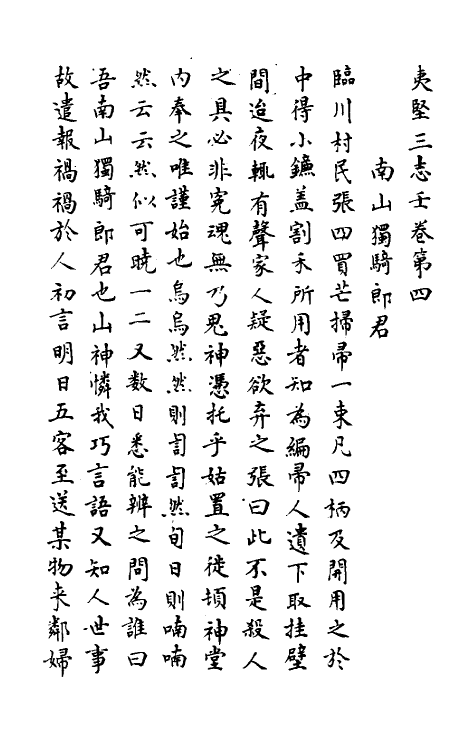 夷堅三志壬卷第四
南山獨騎郎君
臨川村民張四買芒掃帚一束凡四柄及開用之於
中得小鐮盖割禾所用者知為編帚人遺下取挂壁
間迨夜輒有聲家人疑惡欲弃之張曰此不是殺人
之具必非寃魂無乃鬼神憑托乎姑置之徙頓神堂
内奉之唯謹始也烏烏然然則訇訇然旬日則喃喃
然云云然似可曉一二又数日悉能辨之問為誰曰
吾南山獨騎郎君也山神憐我巧言語又知人世事
故遣報禍禍於人初言明日五客至送某物来鄰婦